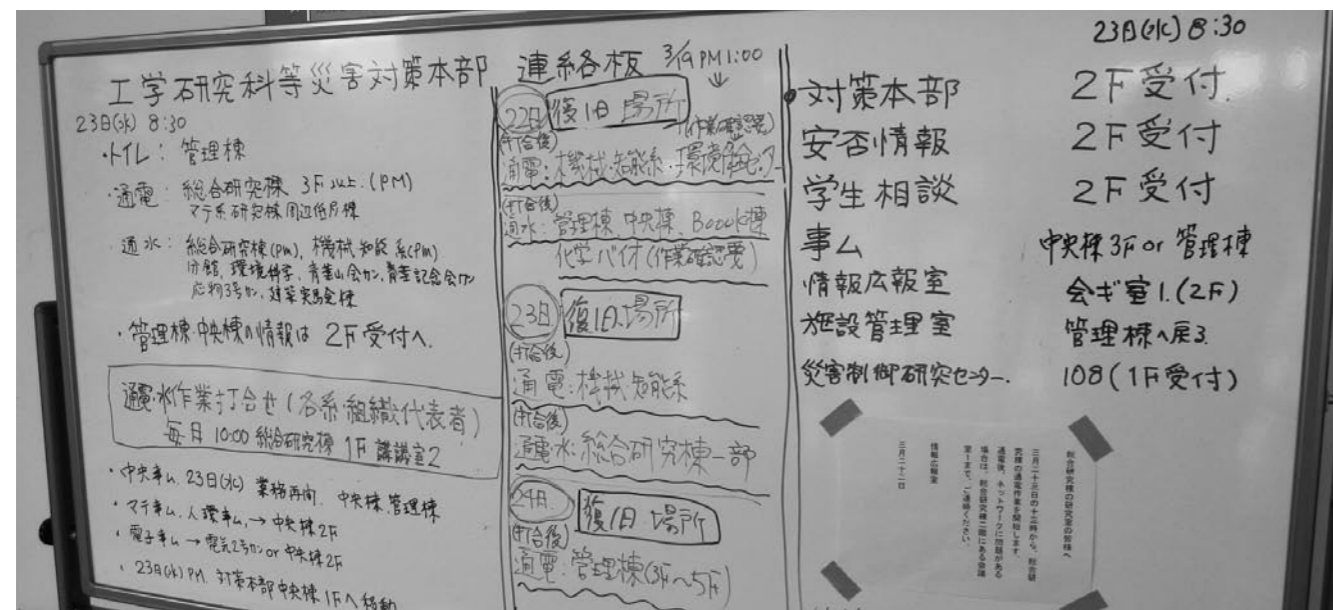 工学研究科等災害対策本部 連絡板 3/19 PM1:00
23日(水) 8:30
・トイレ: 管理棟
・通電: 総合研究棟 3F以上.(PM)
マテ系研究棟周辺低層棟
通水: 総合研究棟(pm), 機械・知能系(pm)
分館, 環境科学, 青葉山会カン, 青葉記念会カン
応物3号カン, 建築実験棟
・管理棟・中央棟の情報は 2F受付へ.
通電・水作業打合せ(各系・組織代表者)
毎日 10:00 総合研究棟 1F 講議室2
・中央事ム. 23日(水) 業務再開. 中央棟. 管理棟
・マテ事ム. 人環事ム. → 中央棟2F
・電子事ム → 電気2号カン or 中央棟2F
・23日(水) PM. 対策本部 中央棟 1Fへ移動
22日 復旧場所
(作業確認要)
(打合後)
通電: 機械・知能系・環境保全センター
(打合後)
通水: 管理棟, 中央棟, Boook棟
化学バイオ(作業確認要)
23日 復旧場所
(打合後)
通電: 機械・知能系
(打合後)
通水: 総合研究棟一部
24日 復旧場所
(打合後)
通電: 管理棟(3F〜5F)
23日(水) 8:30
・対策本部 2F受付.
安否情報 2F受付
学生相談 2F受付
事ム 中央棟3F or 管理棟
情報広報室 会ギ室1.(2F)
施設管理室 管理棟へ戻る.
災害制御研究センター. 108(1F受付)
総合研究棟の研究室の皆様へ
三月二十三日の十三時から、総合研
究棟の通電作業を開始します。
通電後、ネットワークに問題がある
場合は、総合研究棟二階にある会議
室1まで、ご連絡ください。
情報広報室
三月二十二日